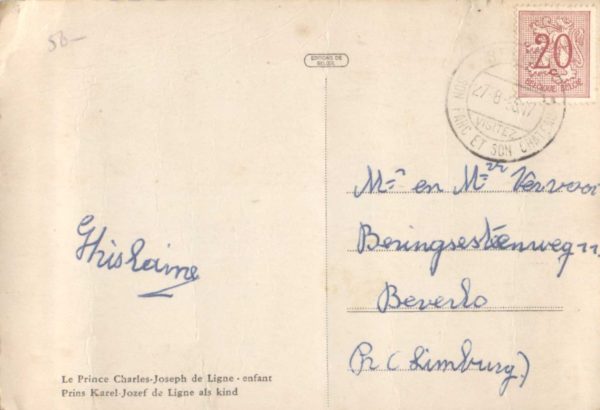 50-
EDITIONS DE
BELŒIL
20
BELGIQUE-BELGIE
27-8-
VISITEZ
SON PARC ET SON CHATEAU
Mr en Mevr Vervoor
Beringsesteenweg
Beverlo
Pr (Limburg)
Ghislaine
Le Prince Charles-Joseph de Ligne - enfant
Prins Karel-Jozef de Ligne als kind